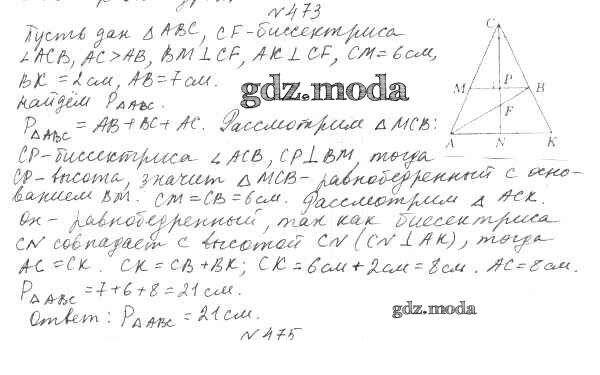 №473
Пусть дан △ABC, CF-биссектриса
∠ACB, AC>AB, BM⊥CF, AK⊥CF, CM=6см,
BK=2см, AB=7см.
найдём P△ABC.
P△ABC=AB+BC+AC. Рассмотрим △MCB:
CP-биссектриса ∠ACB, CP⊥BM, тогда
CP-высота, значит △MCB-равнобедренный с осно-
ванием BM. CM=CB=6см. Рассмотрим △ ACK.
Он-равнобедренный, так как биссектриса
CN совпадает с высотой CN (CN⊥AK), тогда
AC=CK. CK=CB+BK; CK=6см+2см=8см. AC=8см.
P△ABC=7+6+8=21см.
Ответ: P△ABC=21см.
№475
gdz.moda
gdz.moda
C
M P B
F
A N K